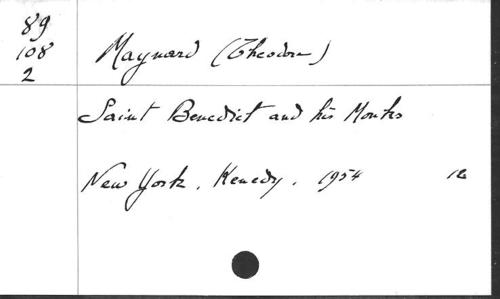 89
108
2
Maynard (Theodore)
Saint Benedict and his Monks
New York, Kenedy, 1954 12